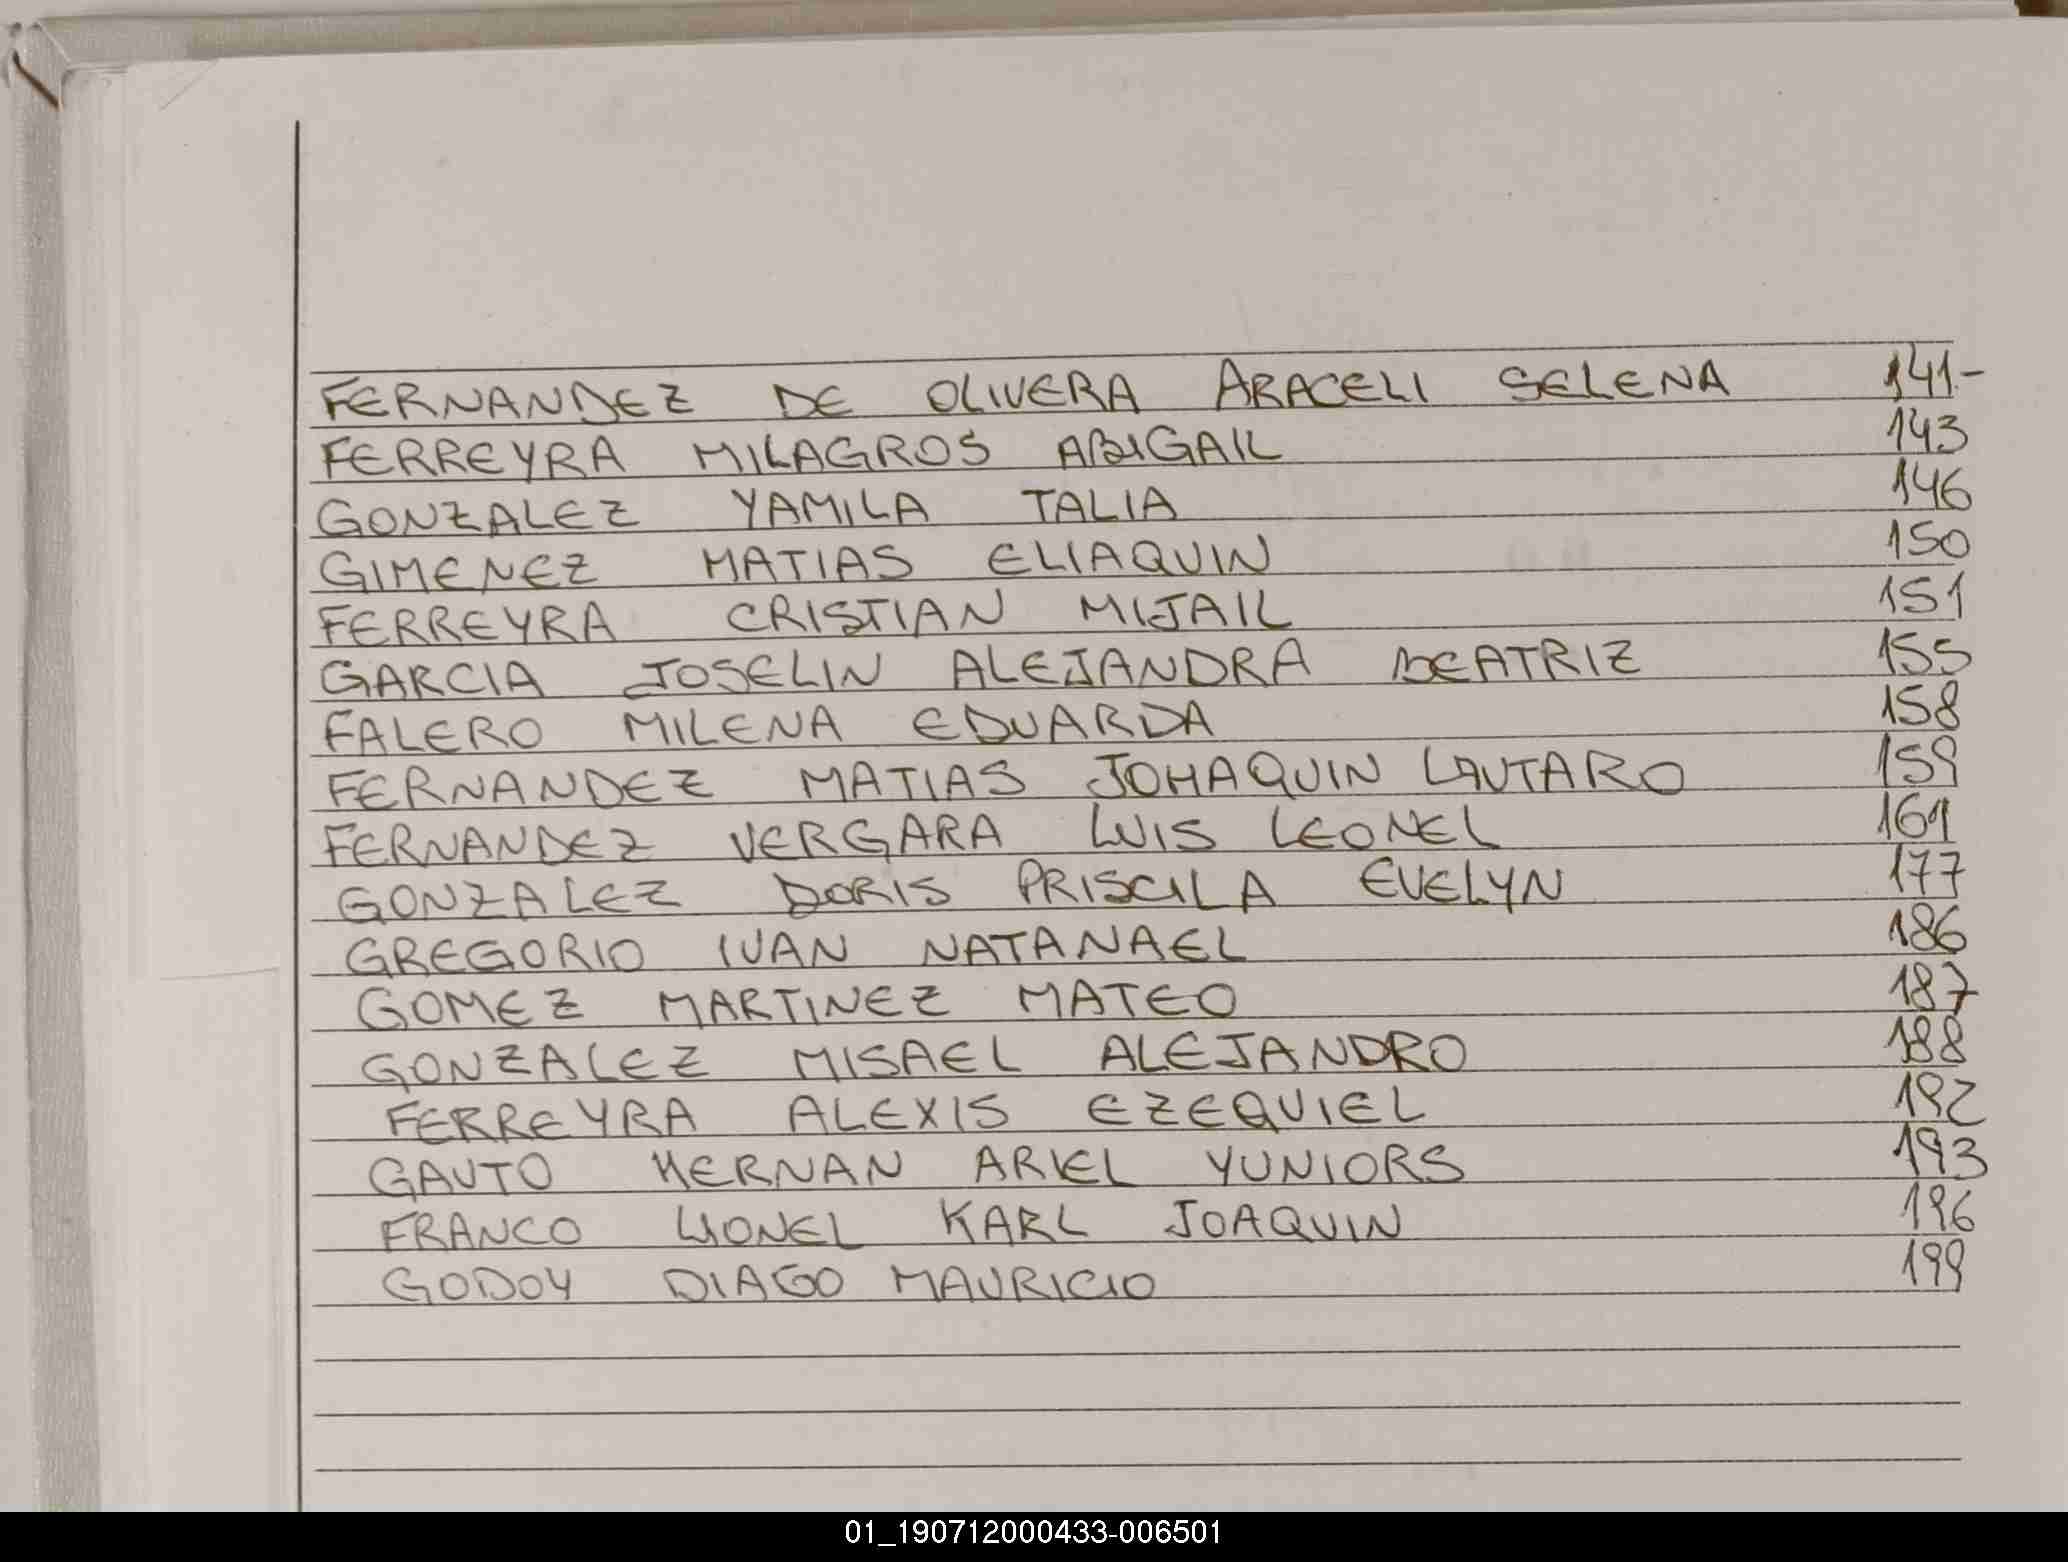 FERNANDEZ DE OLIVERA ARACELI SELENA 141-
FERREYRA MILAGROS ABIGAIL 143
GONZALEZ YAMILA TALIA 146
GIMENEZ MATIAS ELIAQUIN 150
FERREYRA CRISTIAN MIJAIL 151
GARCIA JOSELIN ALEJANDRA BEATRIZ 155
FALERO MILENA EDUARDA 158
FERNANDEZ MATIAS JOHAQUIN LAUTARO 159
FERNANDEZ VERGARA LUIS LEONEL 161
GONZALEZ DORIS PRISCILA EVELYN 177
GREGORIO IVAN NATANAEL 186
GOMEZ MARTINEZ MATEO 187
GONZALEZ MISAEL ALEJANDRO 188
FERREYRA ALEXIS EZEQUIEL 192
GAUTO HERNAN ARIEL YUNIORS 193
FRANCO LIONEL KARL JOAQUIN 196
GODOY DIAGO MAURICIO 199
01_190712000433-006501